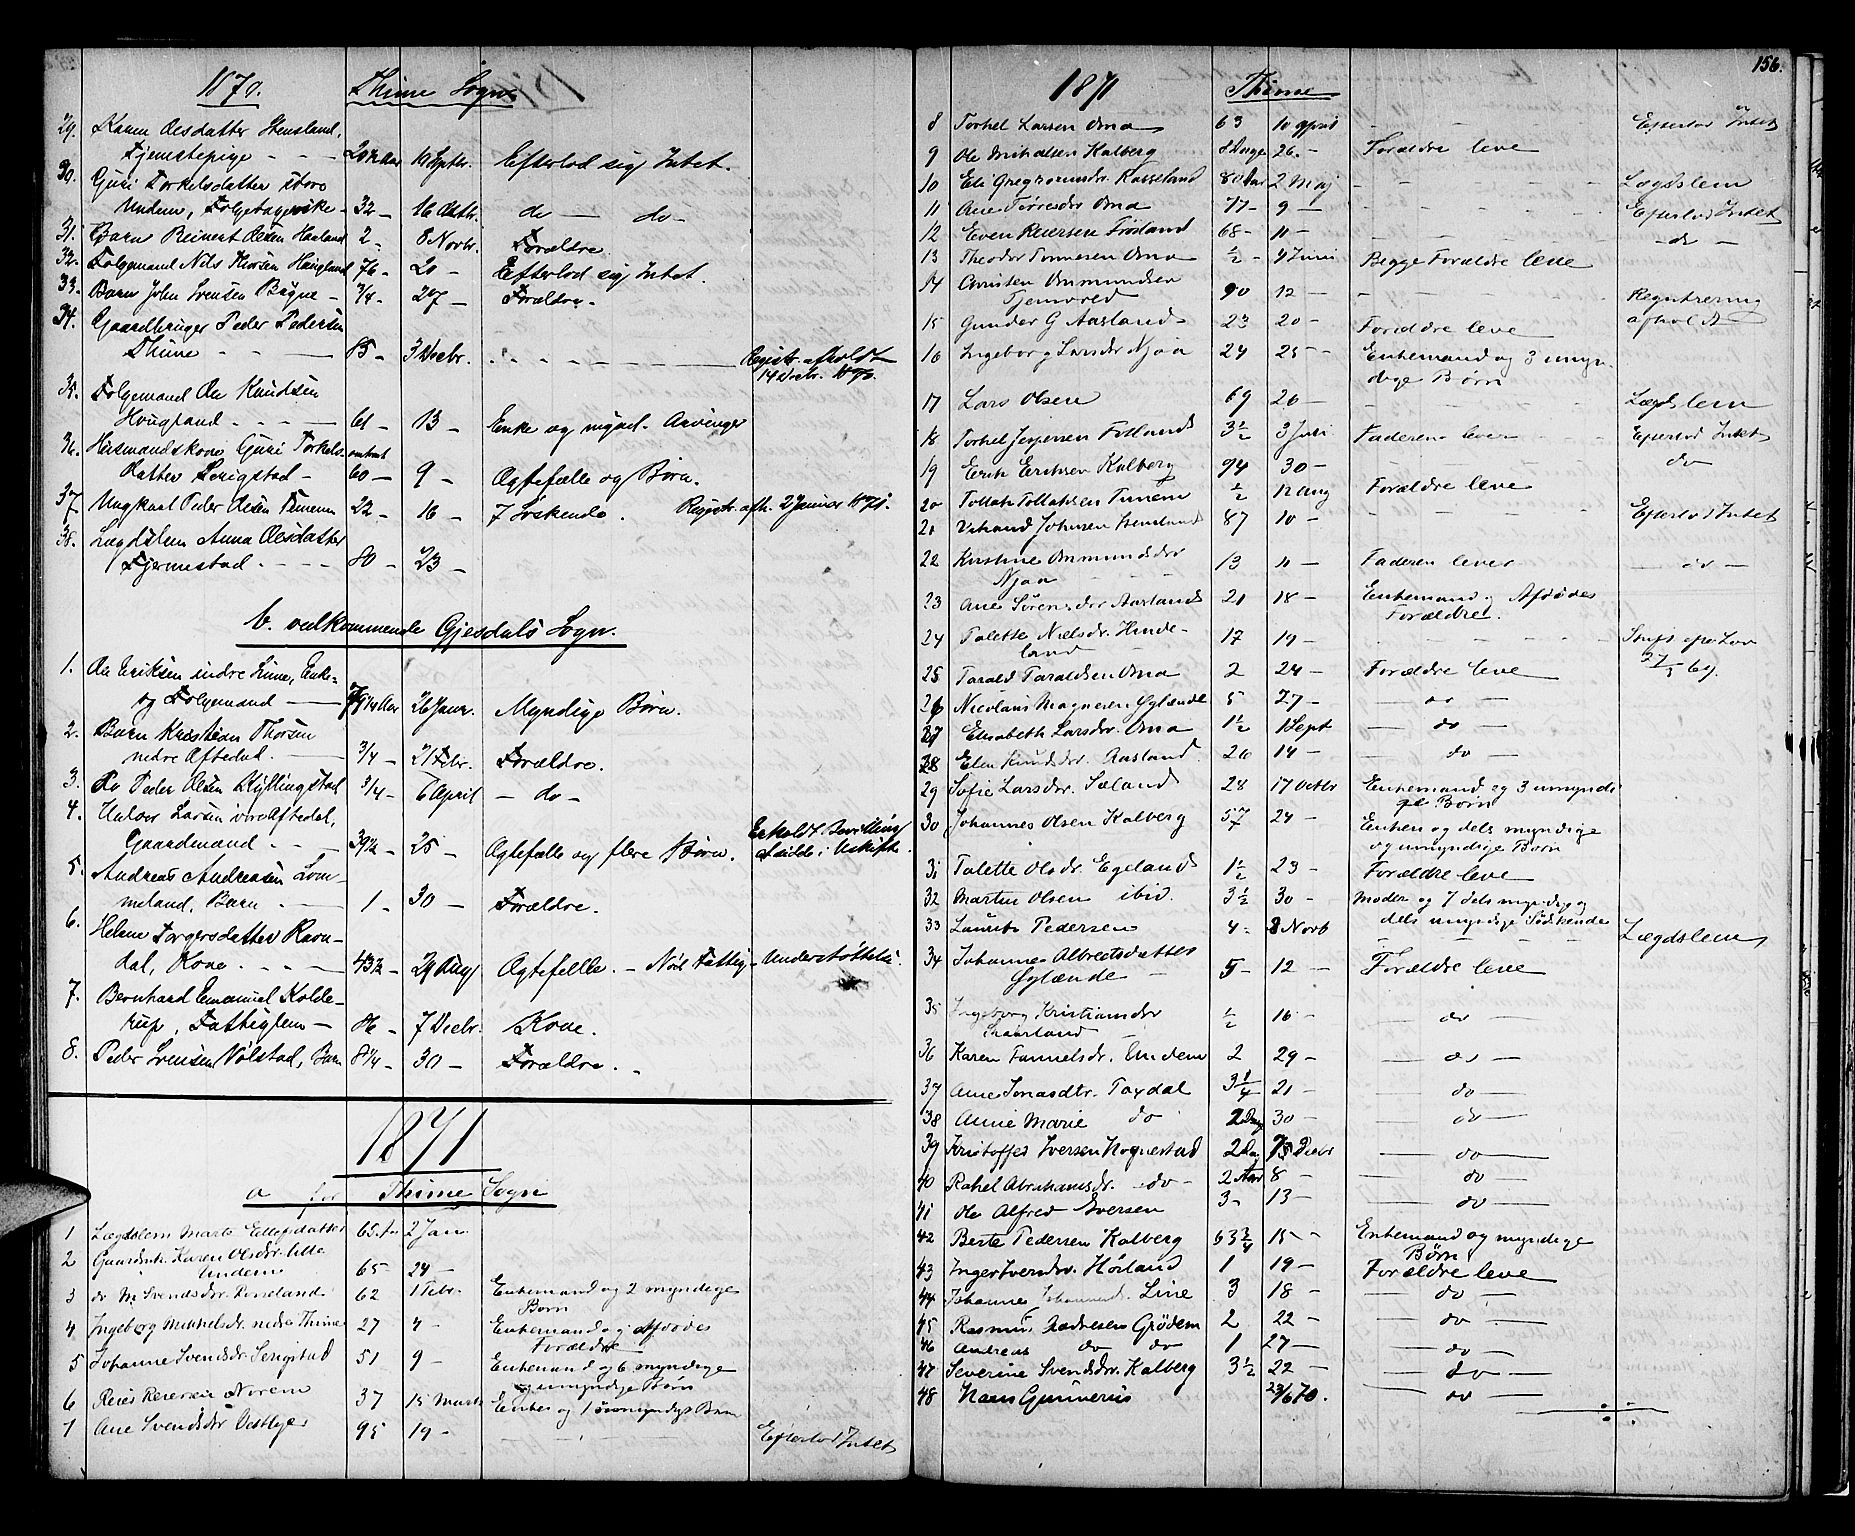 1870. Thime Sogn
29. Karen Olesdatter Hensland,
Tjenstepige - - - 20 1/2 Aar 11 Septr. Efterlod sig Intet.
30. Guri Torkelsdatter store
Undem, 32 - 16 Octbr. do - do -
31. Barn Reinert Olesen Haaland 2 - 8 Novbr. Forældre
32. Folgemand Nils Thorsen Haugland 76 - 20 - Efterlod sig Intet.
33. Barn John Svensen Bryne - 3/4 - 27 - Forældre.
34. Gaardbruger Peder Pedersen
Thime - - - 85 - 3 Decbr. - - - Registr. afholdt
14 Decbr. 1870.
35. Folgemand Ole Knudsen
Hougland - - - 61 - 13 - Enke og mynd. Arvinger
36. Husmandskone Guri Torkels- omtrent
datter Serigstad - 60 - 9 - Ægtefælle og Børn.
37. Ungkarl Peder Olesen Tunem 22 - 16 - 7 Søskende. Registr. afh. 2 Januar 1871.
38. Lægdslem Anna Olesdatter
Fjermestad - - - 80 - 23 -
b. vedkommende Gjesdals Sogn.
1. Ole Eriksen indre Lime, Enke-
og Folgemand - 79 1/4 Aar 26 Janr. Myndige Børn.
2. Barn Kristian Thorsen
nedre Aftedal. - 3/4 - 21 Febr. Forældre.
3. Do Peder Olsen Kyllingstad 3/4 - 6 April - do -
4. Halvor Larsen øvre Aftedal,
Gaardmand - - 39 1/2 - 25 - Ægtefælle og flere Børn. Enkeholdt Bevilling
Sidde i Uskifte.
5. Andreas Andreasen Lom-
meland, Barn - - 1 - 30 - Forældre.
6. Helene Torgersdatter Ravn-
dal, Kone - - - 43 1/2 - 29 Aug Ægtefelle. - Nød Fattig-Understøttelse.
7. Bernhard Emanuel Kolde-
rup, Fattiglem - 86 - 7 Decbr. Kone.
8. Peder Svensen Vølstad, Barn 8 1/4 - 30 - Forældre.
1871
a for Thime Sogn
1 Lægdslem Marte Ellefsdatter 65 2 Jan
2 Gaardmk. Karen Olsdr. lille
Undem 65 24 -
3 do M. Svendsdr. Roseland 62 1 Febr. Enkemand og 2 myndige
Børn
4 Ingeborg Mikkelsdr. nedre Thime 27 4 - Enkemand og Afdødes
Forældre
5 Johanne Svendsdr Serigstad 51 9 - Enkemand og 6 myndige
og umyndige Børn
6 Reier Reiersen Norem 37 15 Marts Enken og 1 umyndigt Barn
7 Ane Svendsdr Vestlye 95 19 - Efterlod Intet
156.
1871 Thime
8 Torkel Larsen Oma 63 10 April - - - Efterlod Intet
9 Ole Mikalsen Kalberg 8 Dage 26. - Forældre leve
10 Eli Gregoriusdr. Rosseland 80 Aar 2 Maj - - - Lægdslem
11 Ane Tørresdr Oma 77 - 9 - - - - Efterlod Intet
12 Even Reiersen Frøiland 68 - 11 - - do -
13 Theodor Tonnesen Oma 1/2 - 4 Juni Begge Forældre leve
14 Ommundsen
90 12 - - - - Registrering
afholdt
15 Gunder G Aasland 23 20 - Forældre leve
16 Ingeborg Larsdr Njaa 24 25 - Enkemand og 3 umyn-
dige Børn
17 Lars Olsen 69 26 - - - - Lægdslem
18 Torkel Jørgensen Fotland 3 1/2 3 Juli Faderen lever - - Efterlod Intet
19 Erik Eriksen Kalberg 94 30 - - - - do
20 Tollak Tollaksen Tunem 1/2 12 Aug Forældre leve
21 Johnsen 87 10 - - - - Efterlod Intet
22 Kirstine Ommundsdr
Njaa 13 11 - Faderen lever - do -
23 Ane Sørensdr Aasland 21 18 - Enkemand og Afdødes
Forældre.
24 Talette Nielsdr. Hinde-
land 17 19 - - - - Skifte Lov
27/3 69.
25 Tarald Taraldsen Oma 2 24 - Forældre leve
26 Nicolai Magnesen Gylænde 5 27 - - do -
27 Elisabeth Larsdr. Oma 1 1/2 1 Sept - do -
28 Elen Knudsdr. Aasland 26 14 - do -
29 Sofie Larsdr. Sæland 28 17 Octbr Enkemand og 3 umyndi
ge Børn
30 Johannes Olsen Kalberg 57 24 - Enken og dels myndige
og umyndige Børn
31 Talette Olsdr. Egeland 1 1/2 23 - Forældre leve
32 Martin Olsen ibid. 3 1/2 30 - Moder og 7 dels myndige og
dels umyndige Sødskende
33 Laurits Pedersen 4 - 8 Novb - - - Lægdslem
34 Johannes Albrectsdatter
Gylænde - 5 - 12 - Forældre leve
35 Ingeborg Kristiansdr
1/2 16 - - do -
36 Karen Samuelsdr. Undem 2 29 - - do -
37 Ane Jonasdtr. Taxdal 3 1/4 21 - - do -
38 Anne Marie do 2 Dag 30 - - do -
39 Kristoffer Iversen Hognestad 2 Dag 7 Decbr - do -
40 Rakel Abrahamsdr. - do - 2 Aar 8 - - do -
41 Ole Alfred Iversen 3 - 13 - - do -
42 Berte Pedersen Kalberg 63 3/4 15 - Enkemand og myndige
Børn
43 Inger Iversdr. Hørland 1 19 - Forældre leve
44 Johanne Johannesd. Line 3 18 - - do -
45 Rasmus Andresen Grødem 2 22 - - do -
46 Andreas do do 1 27 - - do -
47 Severine Svendsdr. Kalberg 3 1/2 22 - - do -
48 Hans Gunnerius 23/6 70. do -